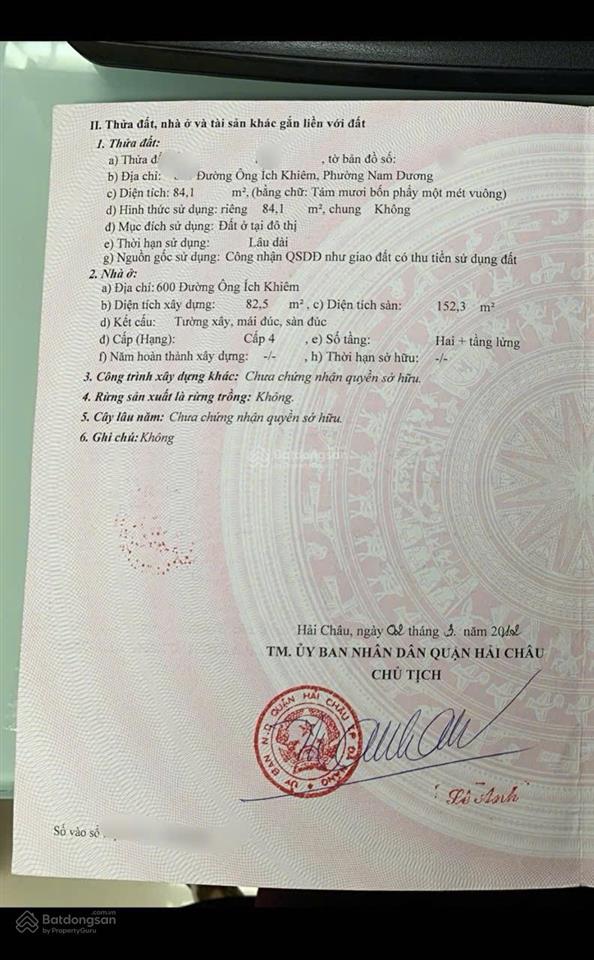 II. Thửa đất, nhà ở và tài sản khác gắn liền với đất
1. Thửa đất:
a) Thửa đ , tờ bản đồ số:
b) Địa chỉ: Đường Ông Ích Khiêm, Phường Nam Dương
c) Diện tích: 84,1 m², (bằng chữ: Tám mươi bốn phẩy một mét vuông)
d) Hình thức sử dụng: riêng 84,1 m², chung Không
đ) Mục đích sử dụng: Đất ở tại đô thị
e) Thời hạn sử dụng: Lâu dài
g) Nguồn gốc sử dụng: Công nhận QSDĐ như giao đất có thu tiền sử dụng đất
2. Nhà ở:
a) Địa chỉ: 600 Đường Ông Ích Khiêm
b) Diện tích xây dựng: 82,5 m² , c) Diện tích sàn: 152,3 m²
d) Kết cấu: Tường xây, mái đúc, sàn đúc
đ) Cấp (Hạng): Cấp 4 , e) Số tầng: Hai + tầng lửng
f) Năm hoàn thành xây dựng: -/- , h) Thời hạn sở hữu: -/-
3. Công trình xây dựng khác: Chưa chứng nhận quyền sở hữu.
4. Rừng sản xuất là rừng trồng: Không.
5. Cây lâu năm: Chưa chứng nhận quyền sở hữu.
6. Ghi chú: Không
Batdongsan
by PropertyGuru
Hải Châu, ngày 02 tháng 3. năm 2012
TM. ỦY BAN NHÂN DÂN QUẬN HẢI CHÂU
CHỦ TỊCH
ỦY BAN N.D QUẬN HẢI CHÂU T.P ĐÀ NẴNG
Lê Anh
Số vào sổ
Batdongsan.com.vn
by PropertyGuru